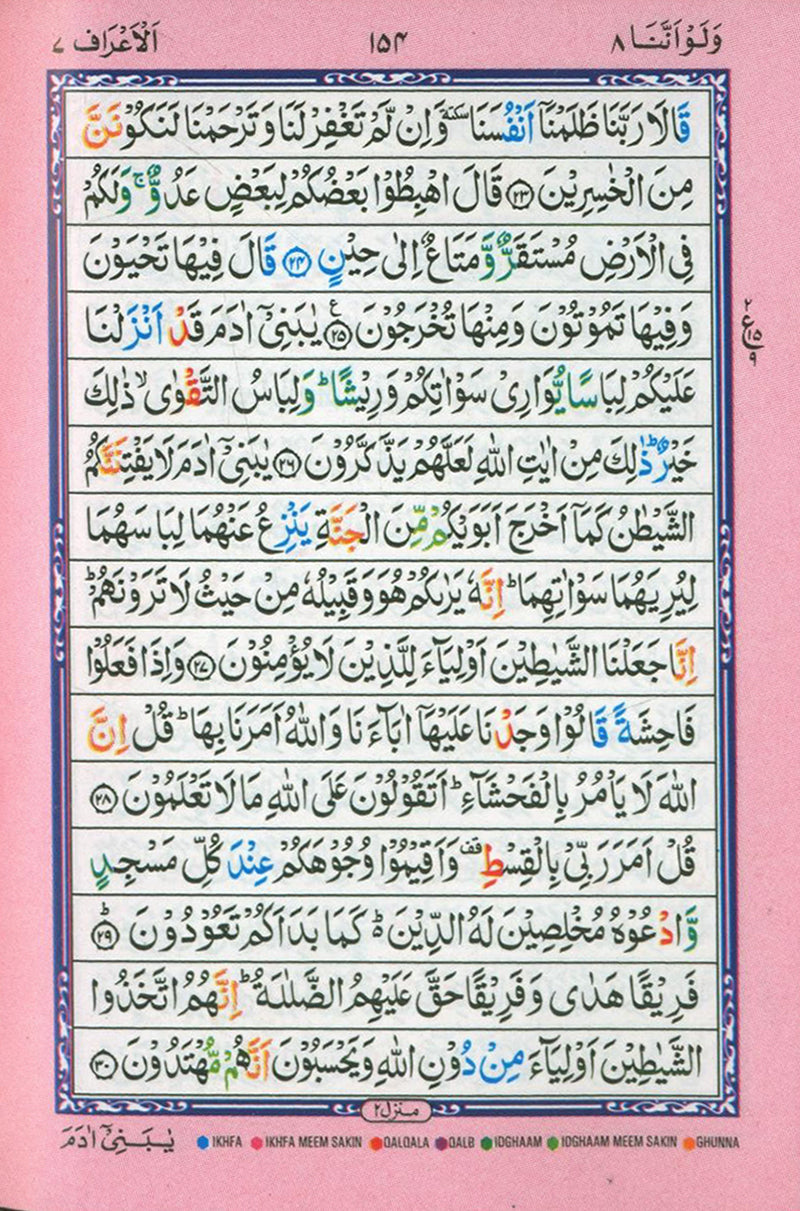 وَلَوْ اَنَّنَا ٨
١٥٤
اَلْاَعْرَاف ٧
قَالَا رَبَّنَا ظَلَمْنَاۤ اَنْفُسَنَا سكتة وَاِنْ لَّمْ تَغْفِرْ لَنَا وَتَرْحَمْنَا لَنَكُوْنَنَّ
مِنَ الْخٰسِرِيْنَ ﴿٢٣﴾ قَالَ اهْبِطُوْا بَعْضُكُمْ لِبَعْضٍ عَدُوٌّ ۚ وَلَكُمْ
فِى الْاَرْضِ مُسْتَقَرٌّ وَّمَتَاعٌ اِلٰى حِيْنٍ ﴿٢٤﴾ قَالَ فِيْهَا تَحْيَوْنَ
وَفِيْهَا تَمُوْتُوْنَ وَمِنْهَا تُخْرَجُوْنَ ﴿٢٥﴾ ع يٰبَنِىْۤ اٰدَمَ قَدْ اَنْزَلْنَا
٢ ع ١٥ ٩
عَلَيْكُمْ لِبَاسًا يُّوَارِىْ سَوْاٰتِكُمْ وَرِيْشًا ؕ وَلِبَاسُ التَّقْوٰى ۙ ذٰلِكَ
خَيْرٌ ؕ ذٰلِكَ مِنْ اٰيٰتِ اللّٰهِ لَعَلَّهُمْ يَذَّكَّرُوْنَ ﴿٢٦﴾ يٰبَنِىْۤ اٰدَمَ لَا يَفْتِنَنَّكُمُ
الشَّيْطٰنُ كَمَاۤ اَخْرَجَ اَبَوَيْكُمْ مِّنَ الْجَنَّةِ يَنْزِعُ عَنْهُمَا لِبَاسَهُمَا
لِيُرِيَهُمَا سَوْاٰتِهِمَا ؕ اِنَّهٗ يَرٰىكُمْ هُوَ وَقَبِيْلُهٗ مِنْ حَيْثُ لَا تَرَوْنَهُمْ ؕ
اِنَّا جَعَلْنَا الشَّيٰطِيْنَ اَوْلِيَآءَ لِلَّذِيْنَ لَا يُؤْمِنُوْنَ ﴿٢٧﴾ وَاِذَا فَعَلُوْا
فَاحِشَةً قَالُوْا وَجَدْنَا عَلَيْهَاۤ اٰبَآءَنَا وَاللّٰهُ اَمَرَنَا بِهَا ؕ قُلْ اِنَّ
اللّٰهَ لَا يَاْمُرُ بِالْفَحْشَآءِ ؕ اَتَقُوْلُوْنَ عَلَى اللّٰهِ مَا لَا تَعْلَمُوْنَ ﴿٢٨﴾
قُلْ اَمَرَ رَبِّىْ بِالْقِسْطِ قف وَاَقِيْمُوْا وُجُوْهَكُمْ عِنْدَ كُلِّ مَسْجِدٍ
وَّادْعُوْهُ مُخْلِصِيْنَ لَهُ الدِّيْنَ ۬ؕ كَمَا بَدَاَكُمْ تَعُوْدُوْنَ ﴿٢٩﴾ؕ
فَرِيْقًا هَدٰى وَفَرِيْقًا حَقَّ عَلَيْهِمُ الضَّلٰلَةُ ؕ اِنَّهُمُ اتَّخَذُوا
الشَّيٰطِيْنَ اَوْلِيَآءَ مِنْ دُوْنِ اللّٰهِ وَيَحْسَبُوْنَ اَنَّهُمْ مُّهْتَدُوْنَ ﴿٣٠﴾
منزل ٢
يٰبَنِىْۤ اٰدَمَ
IKHFA IKHFA MEEM SAKIN QALQALA QALB IDGHAAM IDGHAAM MEEM SAKIN GHUNNA